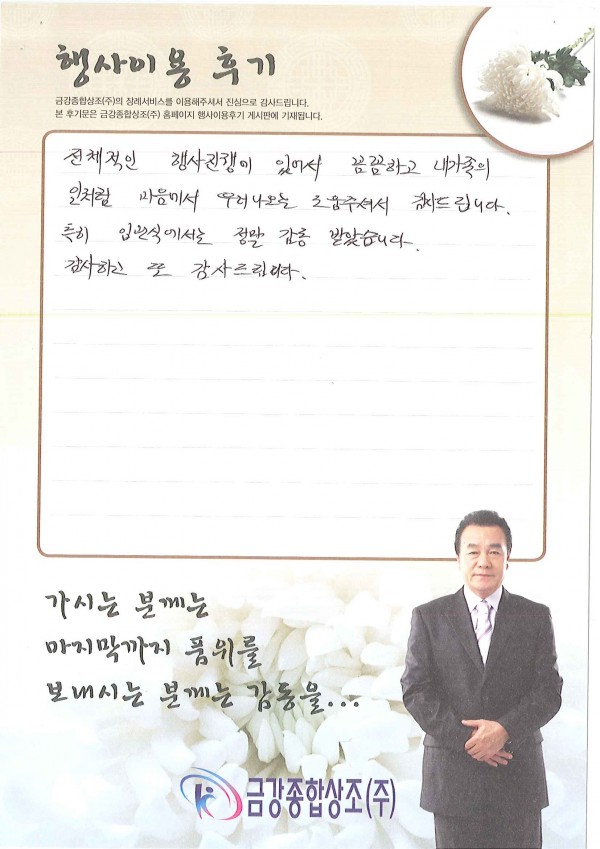 행사이용 후기
금강종합상조(주)의 장례서비스를 이용해주셔서 진심으로 감사드립니다.
본 후기문은 금강종합상조(주) 홈페이지 행사이용후기 게시판에 기재됩니다.
전체적인 행사진행에 있어서 꼼꼼하고 내가족의
일처럼 마음에서 우러나오는 도움주셔서 감사드립니다.
특히 입관식에서는 정말 감동 받았습니다.
감사하고 또 감사드립니다.
가시는 분께는
마지막까지 품위를
보내시는 분께는 감동을...
금강종합상조(주)